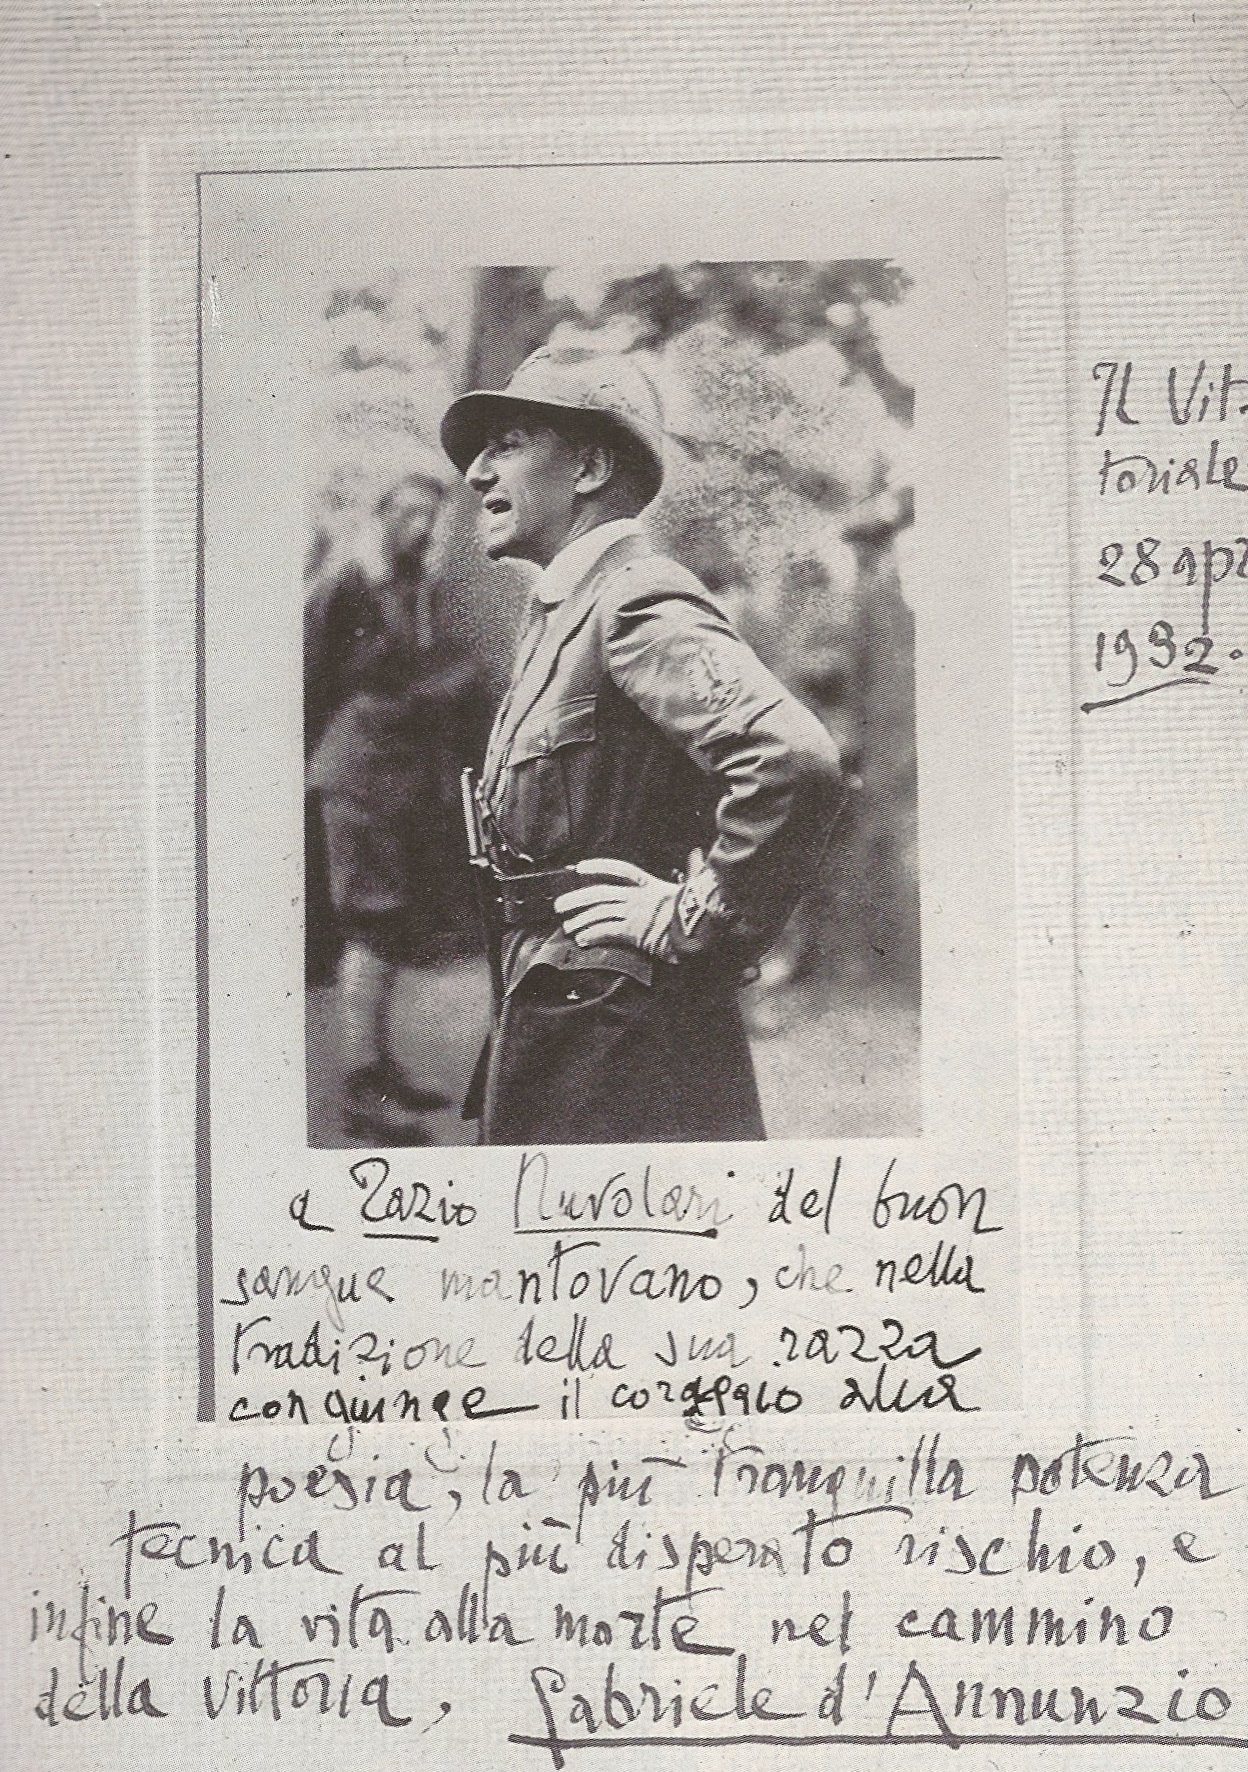 Il Vit-
toriale
28 apr
1932.
a Tazio Nuvolari del buon
sangue mantovano, che nella
tradizione della sua razza
congiunge il coraggio alla
poesia, la più tranquilla potenza
tecnica al più disperato rischio, e
infine la vita alla morte nel cammino
della vittoria,
Gabriele d'Annunzio